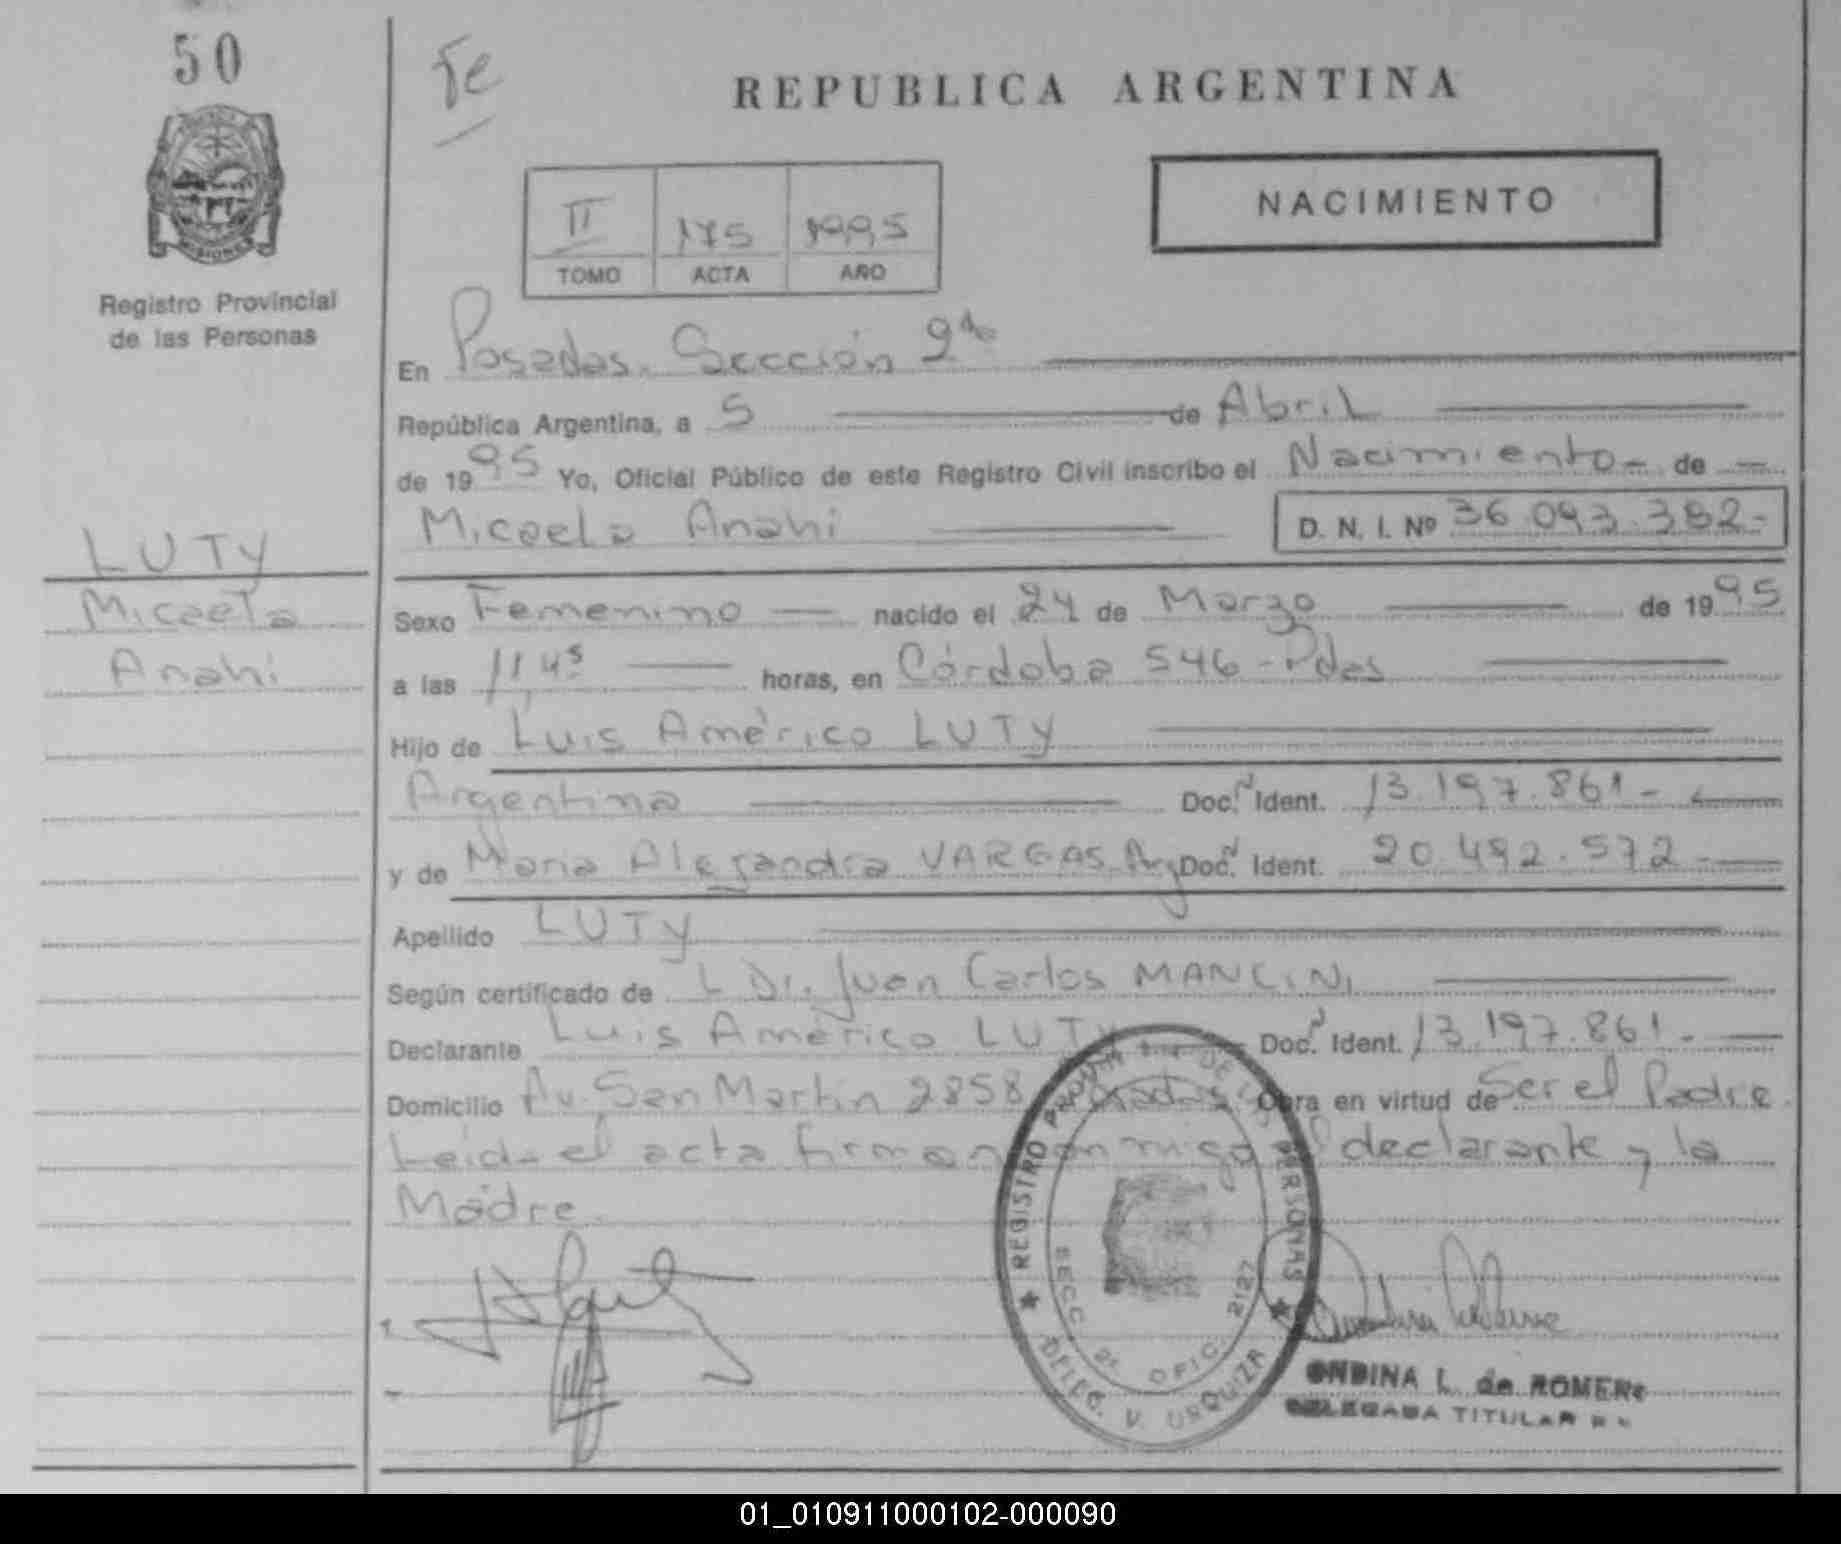 50
Fe
REPUBLICA ARGENTINA
NACIMIENTO
II 175 1995
TOMO ACTA AÑO
Registro Provincial
de las Personas
MISIONES
En Posadas. Sección 2da
República Argentina, a 5 de Abril
de 1995 Yo, Oficial Público de este Registro Civil inscribo el Nacimiento - de -
Micaela Anahi D. N. I. Nº 36.093.382-
LUTY
Micaela
Anahi
Sexo Femenino nacido el 24 de Marzo de 1995
a las 11,45 horas, en Córdoba 546 - Pdas
Hijo de Luis Américo LUTY
Argentina Doc. N Ident. 13.197.861-
y de Maria Alejandra VARGAS. Arg Doc. N Ident. 20.492.572-
Apellido LUTY
Según certificado de L Dr. Juan Carlos MANCINI
Declarante Luis Américo LUTY Doc. N Ident. 13.197.861.-
Domicilio Av. San Martin 2858 Posadas Obra en virtud de Ser el Padre.
Leida el acta firman conmigo el declarante y la
Madre.
REGISTRO PROVINCIAL DE LAS PERSONAS
SECC. 2ª OFIC. 2127
DELEG. V. URQUIZA
ONDINA L. de ROMERO
DELEGADA TITULAR
01_010911000102-000090